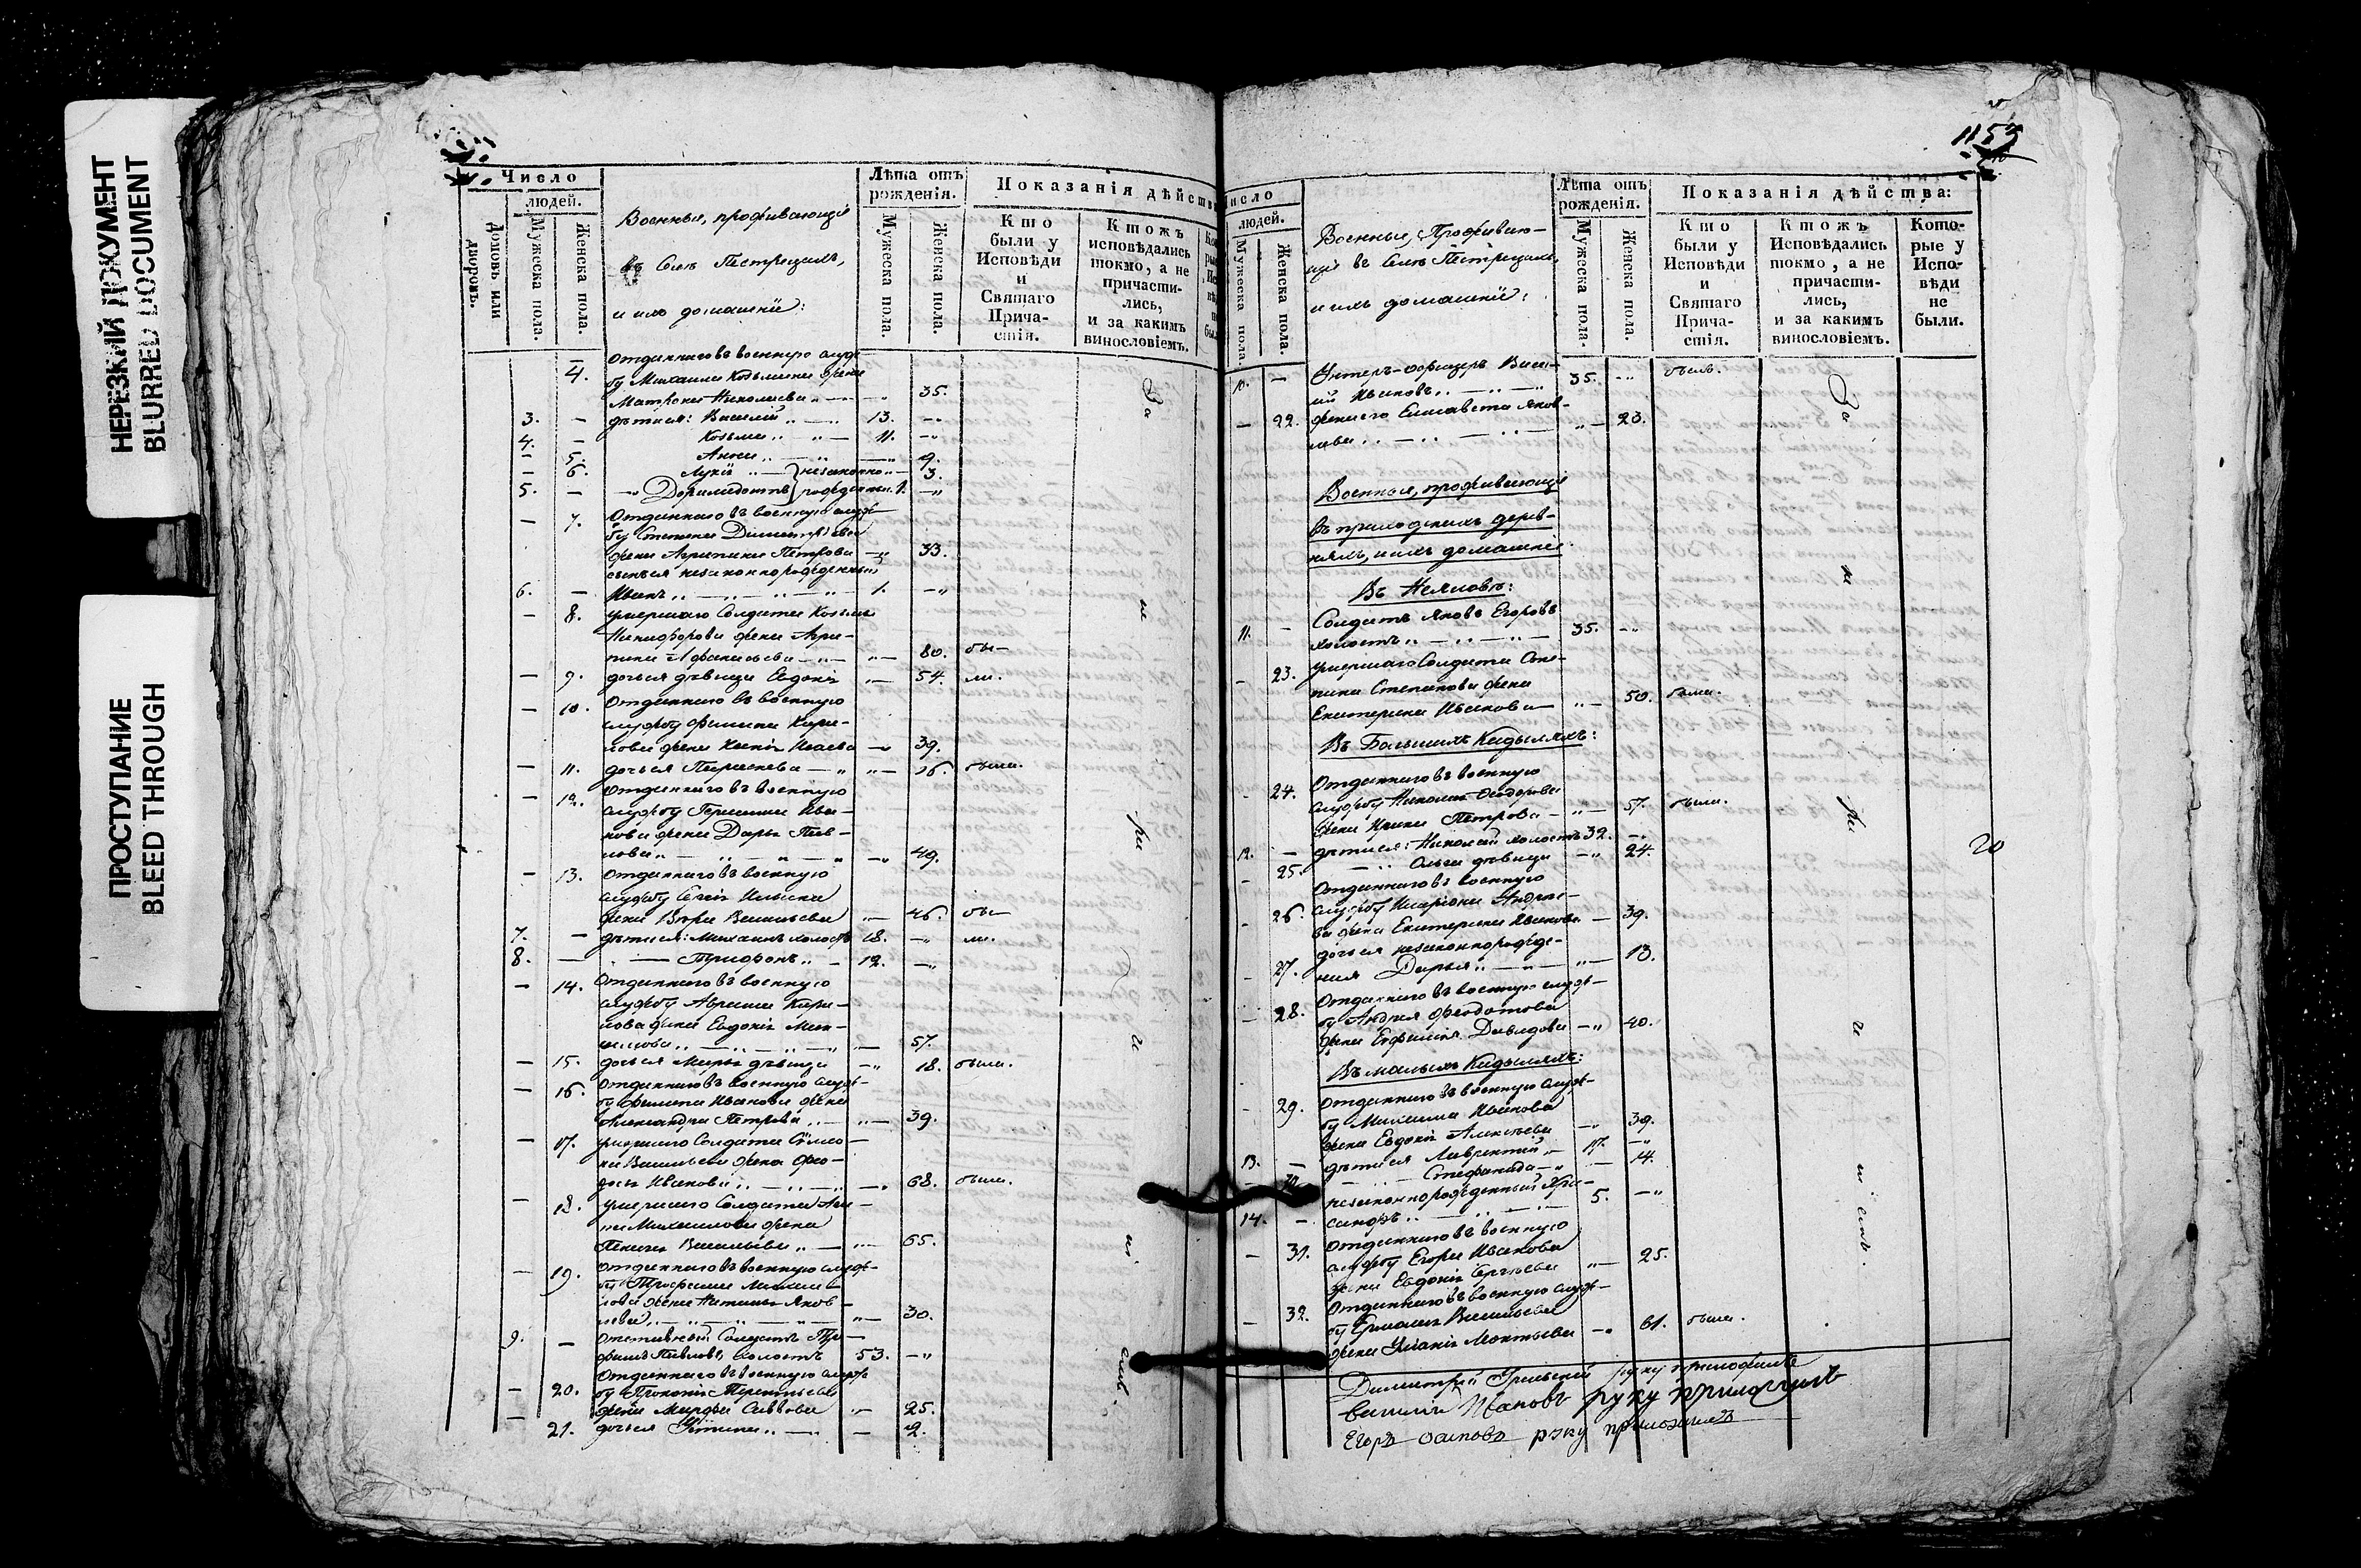 НЕРЕЗКИЙ ДОКУМЕНТ
BLURRED DOCUMENT
ПРОСТУПАНИЕ
BLEED THROUGH
Число
людей.
Домовъ или дворовъ.
Мужеска пола.
Женска пола.
Военные, проживающіе
въ Селѣ Пестрецахъ,
и ихъ домашніе:
Лѣта отъ рожденія.
Мужеска пола.
Женска пола.
Показанія дѣйств
Кто были у Исповѣди и Святаго Причастія.
Ктожъ исповѣдались токмо, а не причастились, и за какимъ винословіемъ.
4. Отданнаго въ военную служ-
бу Михаила Козьмина жена
Матрона Николаева 35.
3. — дѣти ея: Василій 13.
4. — Козьма 11.
— 5. Анна 9.
— 6. незаконно 3.
5. — Доримедонтъ рожденные 1.
— 7. Отданнаго въ военную служ-
бу Степана Димитріева
жена Агрипина Петрова 33.
сынъ ея незаконнорожденный
6. — Иванъ 1.
— 8. умершаго Солдата Козьмы
Никифорова жена Агри-
пина Афанасьева 80. бы-
— 9. дочь ея дѣвица Евдокія 54. ли.
— 10. Отданнаго въ военную
службу Филипа Кири-
лова жена Исаева 39.
— 11. дочь ея Параскева 16. были.
— 12. Отданнаго въ военную
службу Герасима Ива-
нова жена Дарья Пав-
лова 49.
— 13. Отданнаго въ военную
службу Сергія Ильина
жена Васильева 46. бы-
7. — дѣти ея: Михаилъ холостъ 18. ли.
8. — Трифонъ 12.
— 14. Отданнаго въ военную
службу Абрама Кири-
лова жена Евдокія Мак-
симова 57.
— 15. дочь ея Марья дѣвица 18. были.
— 16. Отданнаго въ военную служ-
бу Филипа Иванова жена
Александра Петрова 39.
— 17. умершаго Солдата Симео-
на Васильева жена Фео-
досья Иванова 68. были.
— 18. умершаго Солдата
Михаилова жена
Васильева 65.
— 19. Отданнаго въ военную служ-
бу Трофима Михаи-
лова жена Наталья Яков-
лева 30.
9. — отставный Солдатъ Тро-
фимъ Павловъ, холостъ 53.
Отданнаго въ военную служ-
— 20. бу Прокопія Терентьева
жена Марфа Саввова 25.
— 21. дочь ея Устинья 2.
За
не
при
и
ні
емъ.
1153
Число
людей.
Мужеска пола.
Женска пола.
Военные, Проживаю-
щіе въ Селѣ Пестрецахъ
и ихъ домашніе:
Лѣта отъ рожденія.
Мужеска пола.
Женска пола.
Показанія дѣйства:
Кто были у Исповѣди и Святаго Причастія.
Ктожъ Исповѣдались токмо, а не причастились, и за какимъ винословіемъ.
Которые у Исповѣди не были.
10. — Унтеръ-офицеръ Васи-
лій Ивановъ 35. былъ.
— 22. жена его Елисавета Яков-
лева 23.
Военные, проживающіе
въ приходскихъ дерев-
няхъ, и ихъ домашніе
Въ Неяловѣ:
11. — Солдатъ Яковъ Егоровъ
холостъ 35.
— 23. умершаго Солдата
Степанова жена
Екатерина Иванова 50. была.
Въ Большихъ Кидыляхъ:
24. Отданнаго въ военную
службу Николая Феодорова
жена Ирина Петрова 57. были.
12. — дѣти ея: Николай холостъ 32.
25. Ольга дѣвица 24.
Отданнаго въ военную
26. службу Иларіона Андрее-
ва жена Екатерина Иванова 39.
дочь ея незаконнорожде-
27. ная Дарья 13.
Отданнаго въ военную служ-
28. бу Андрея Феодотова
жена Евфимія Давидова 40.
Въ малыхъ Кидыляхъ:
29. Отданнаго въ военную служ-
бу Максима Иванова
жена Евдокія Алексѣева 39.
13. — дѣти ея Лаврентій 17.
30. Стефанида 14.
незаконнорожденный
14. — 5.
31. Отданнаго въ военную
службу Егора Иванова
жена Евдокія Сергѣева 25.
32. Отданнаго въ военную служ-
бу Ермолая Васильева
жена 61. была.
За
не
при
и
ніемъ.
20
Димитрій руку приложилъ
Василій руку приложилъ
Егоръ Осиповъ руку приложилъ